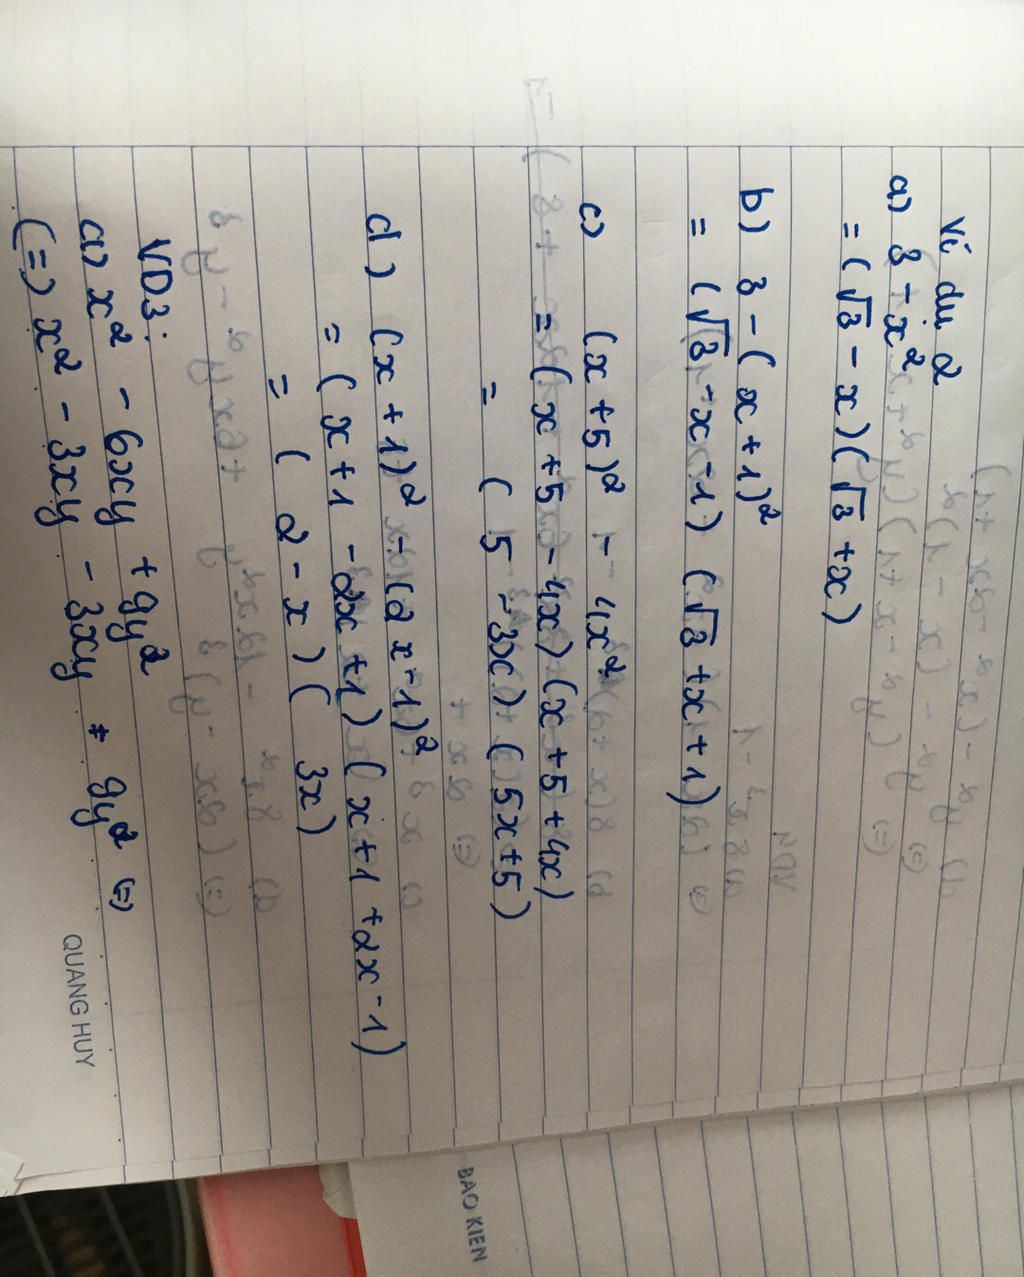 Ví dụ 2
a) 3 - x²
= (√3 - x)(√3 + x)
b) 3 - (x + 1)²
= (√3 - x - 1) (√3 + x + 1)
c) (x + 5)² - 4x²
= (x + 5 - 4x) (x + 5 + 4x)
= (5 - 3x) (5x + 5)
d) (x + 1)² - (2x - 1)²
= (x + 1 - 2x + 1) (x + 1 + 2x - 1)
= (2 - x) (3x)
VD3:
a) x² - 6xy + 9y²
(=) x² - 3xy - 3xy + 9y² (=)
QUANG HUY
BAO KIEN